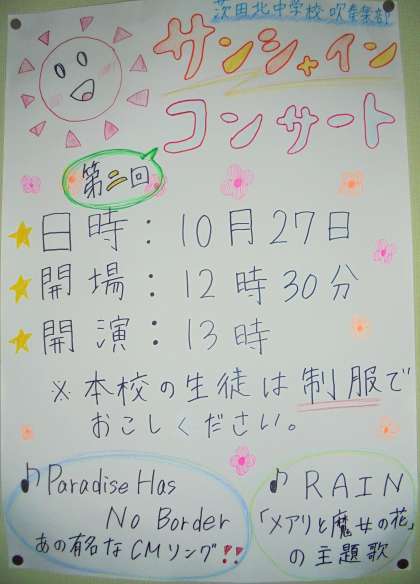 茨田北中学校 吹奏楽部
サンシャイン
コンサート
第二回
日時：10月27日
開場：12時30分
開演：13時
※本校の生徒は制服で
おこしください。
♪Paradise Has
No Border
あの有名なCMソング!!
♪RAIN
「メアリと魔女の花」
の主題歌